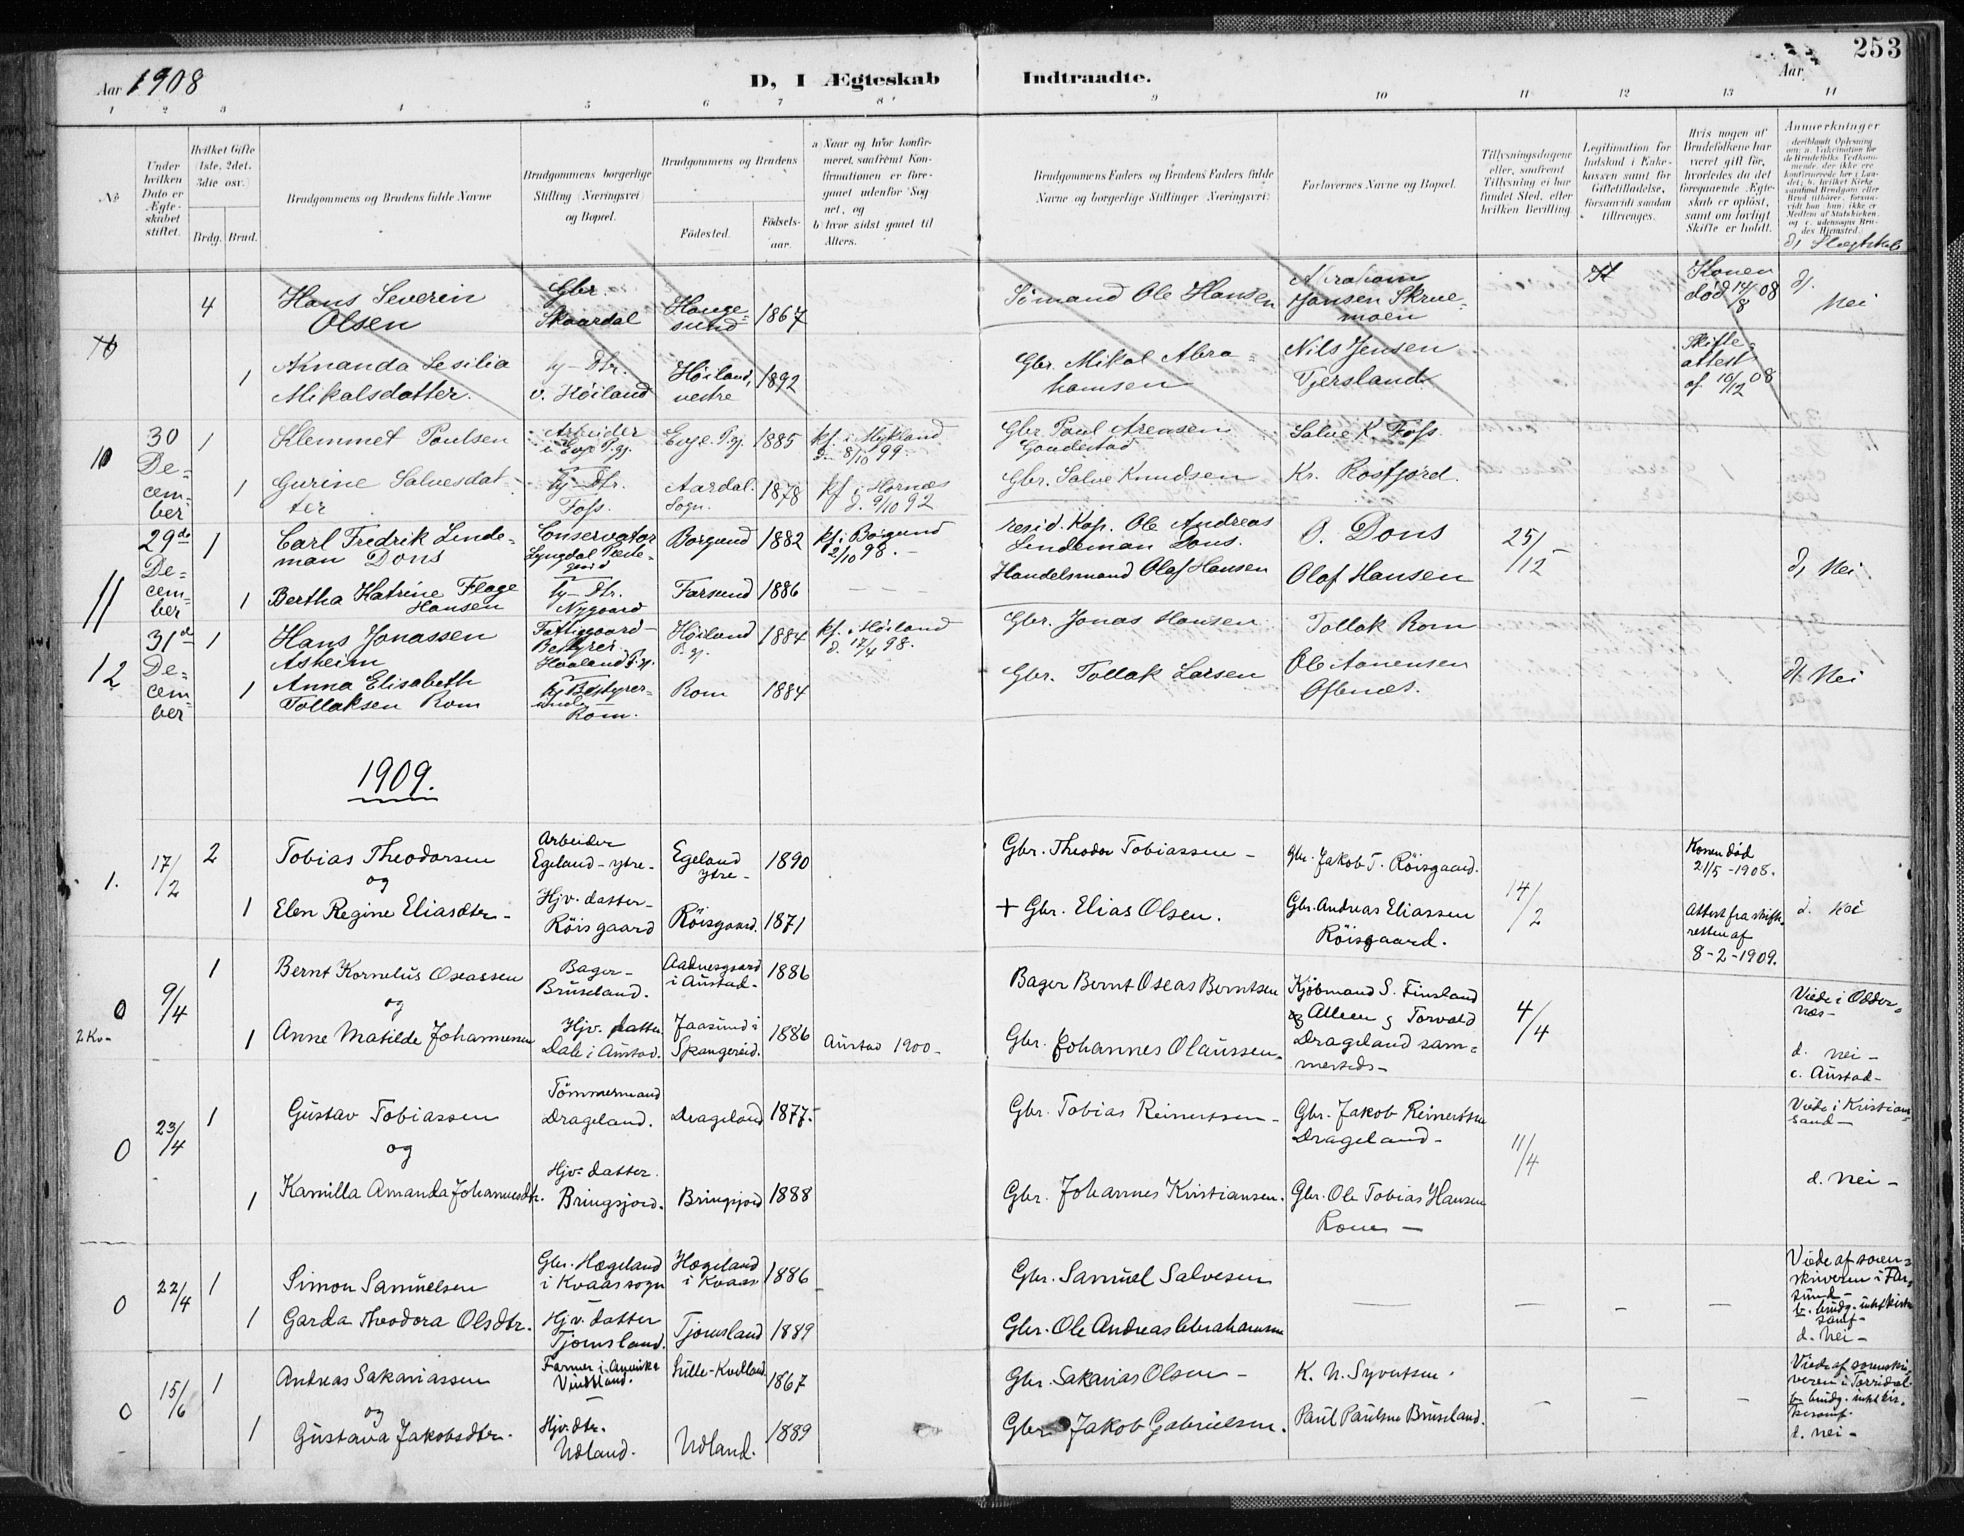 253
Aar 1908
D, I Ægteskab Indtraadte.
Aar
1 2 3 4 5 6 7 8 9 10 11 12 13 14
No
Under hvilken Dato er Ægteskabet stiftet.
Hvilket Gifte (1ste, 2det, 3die osv.)
Brdg. Brud.
Brudgommens og Brudens fulde Navne
Brudgommens borgerlige Stilling (Næringsvei) og Bopæl.
Brudgommens og Brudens
Fødested. Fødsels-aar.
a) Naar og hvor konfirmeret, saafremt Konfirmationen er foregaaet udenfor Sognet, og
b) hvor sidst gaaet til Alters.
Brudgommens Faders og Brudens Faders fulde Navne og borgerlige Stillinger (Næringsvei)
Forlovernes Navne og Bopæl.
Tillysningsdagene eller, saafremt Tillysning ei har fundet Sted, efter hvilken Bevilling.
Legitimation for Indskud i Enkekassen samt for Giftetilladelse, forsaavidt saadan tiltrænges.
Hvis nogen af Brudefolkene har været gift før, hvorledes da det foregaaende Ægteskab er opløst, samt om lovligt Skifte er holdt.
Anmerkninger
d) Slægtskab
4 Hans Severin Olsen Gbr. Skaardal Haugesund 1867 Sømand Ole Hansen Abraham Jansen Skruemoen Konen død 14/8 08 d. Nei
1 Amanda Sesilia Mikalsdatter. hj-Dtr. v. Høiland Høiland, vestre 1892 Gbr. Mikal Abrahamsen Nils Jensen Tjersland Skifteattest af 10/12 08
10 30 December 1 Klemmet Poulsen Arbeider i Evje P.gj. Evje P.gj. 1885 kf. i Mykland d. 8/10 99. Gbr. Paul Arensen Salve K. Foss
1 Gurine Salvesdatter hj-Dtr. Foss. Aardal Sogn. 1878 kf. i Hornæs d. 9/10 92 Gbr. Salve Knudsen Kr. Rosfjord.
11 29de December 1 Carl Fredrik Lindeman Dons Conservator Lyngdal Præstegaard Borgund 1882 kf. i Borgund 2/10 98. - resid. Kap. Ole Andreas Lindeman Dons. O. Dons 25/12
1 Bertha Katrine Flage Hansen hj-Dtr. Nygaard Farsund 1886 Handelsmand Olaf Hansen Olaf Hansen d, Nei
12 31d December 1 Hans Jonassen Asheim Fattiggaard-Bestyrer Haaland P.gj. Høiland P.gj. 1884 kf. i Høiland d. 17/4 98. Gbr. Jonas Hansen Tollak Rom
1 Anna Elisabeth Tollaksen Rom Rom. Rom 1884 Gbr. Tollak Larsen Ole Aanensen d. Nei
1909.
1. 17/2 2 Tobias Theodorsen Arbeider Egeland-ytre- Egeland ytre- 1890 Gbr. Theodor Tobiassen - Gbr. Jakob T. Röisgaard. 14/2 Konen død 21/5-1908.
og
1 Elen Regine Eliasdtr- Hjv. datter- Röisgaard Röisgaard. 1871 + Gbr. Elias Olsen. Gbr. Andreas Eliassen Röisgaard. Attest fra skifteretten af 8-2-1909. d. Nei
0 9/4 1 Bernt Kornelius Oseassen Bager- Bruseland. i Austad- 1886 Bager Bernt Oseas Berntsen Kjöbmand S. Finsland 4/4 Viede i Oddernæs-
og
1 Anne Matilde Johannesen Hjv. datter Dale i Austad. Jaasund i Spangereid. 1886 Austad 1900- Gbr. Johannes Olaussen. Torvald Drageland sammesteds- d. Nei- c. Austad-
0 23/4 1 Gustav Tobiassen Tömmermand Drageland. Drageland 1877- Gbr. Tobias Reinertsen- Gbr. Jakob Reinertsen Drageland- 11/4 Viede i Kristiansand-
og
1 Kamilla Amanda Johannesdtr. Hjv. datter. Bringsjord. Bringsjord 1888 Gbr. Johannes Kristiansen. Gbr. Ole Tobias Hansen Rom- d. Nei-
0 22/4 1 Simon Samuelsen Gbr. Hægeland i Kvaas sogn Hægeland i Kvaas 1886 Gbr. Samuel Salvesen Viede af sorenskriveren i Farsund-
1 Garda Theodora Olsdtr. Hjv. datter Tjomsland. Tjomsland 1889 Gbr. Ole Andreas Abrahamsen d. Nei-
0 15/6 1 Andreas Sakariassen Farmer i Amerika Lille-Kvelland 1867 Gbr. Sakarias Olsen- K. N. Syvertsen. Viede af sorenskriveren i Torridal
og
1 Gustava Jakobsdtr. Hjv. dtr. Udland. Udland. 1889 Gbr. Jakob Gabrielsen. Paul Paulsen Bruseland. d. Nei-